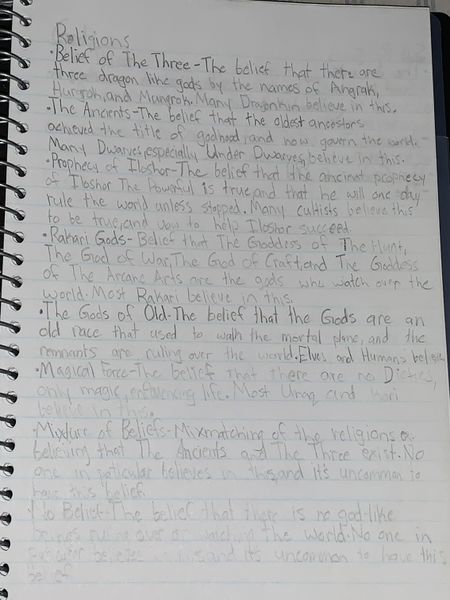 Religions
•Belief of The Three-The belief that there are
three dragon like gods by the names of Angrak,
Hungrok, and Mungrok. Many Dragonkin believe in this.
•The Ancients-The belief that the oldest ancestors
achieved the title of godhood, and now govern the world.
Many Dwarves, especially Under Dwarves, believe in this.
•Prophecy of Iloshor-The belief that the ancient prophecy
of Iloshor The Powerful is true, and that he will one day
rule the world unless stopped. Many cultists believe this
to be true, and vow to help Iloshor succeed.
•Rakari Gods-Belief that The Goddess of The Hunt,
The God of War, The God of Craft, and The Goddess
of The Arcane Arts are the gods who watch over the
world. Most Rakari believe in this.
•The Gods of Old-The belief that the Gods are an
old race that used to walk the mortal plane, and the
remnants are ruling over the world. Elves and Humans believe
•Magical Force-The belief that there are no Dieties,
only magic, influencing life. Most and
believe in this.
•Mixture of Beliefs-Mixmatching of the religions ex.
believing that The Ancients and The Three exist. No
one in paticular believes in this, and it's uncommon to
have this belief.
•No Belief-The belief that there is no god-like
beings ruling over or watching the world. No one in
believes in this, and it's uncommon to have this
belief.